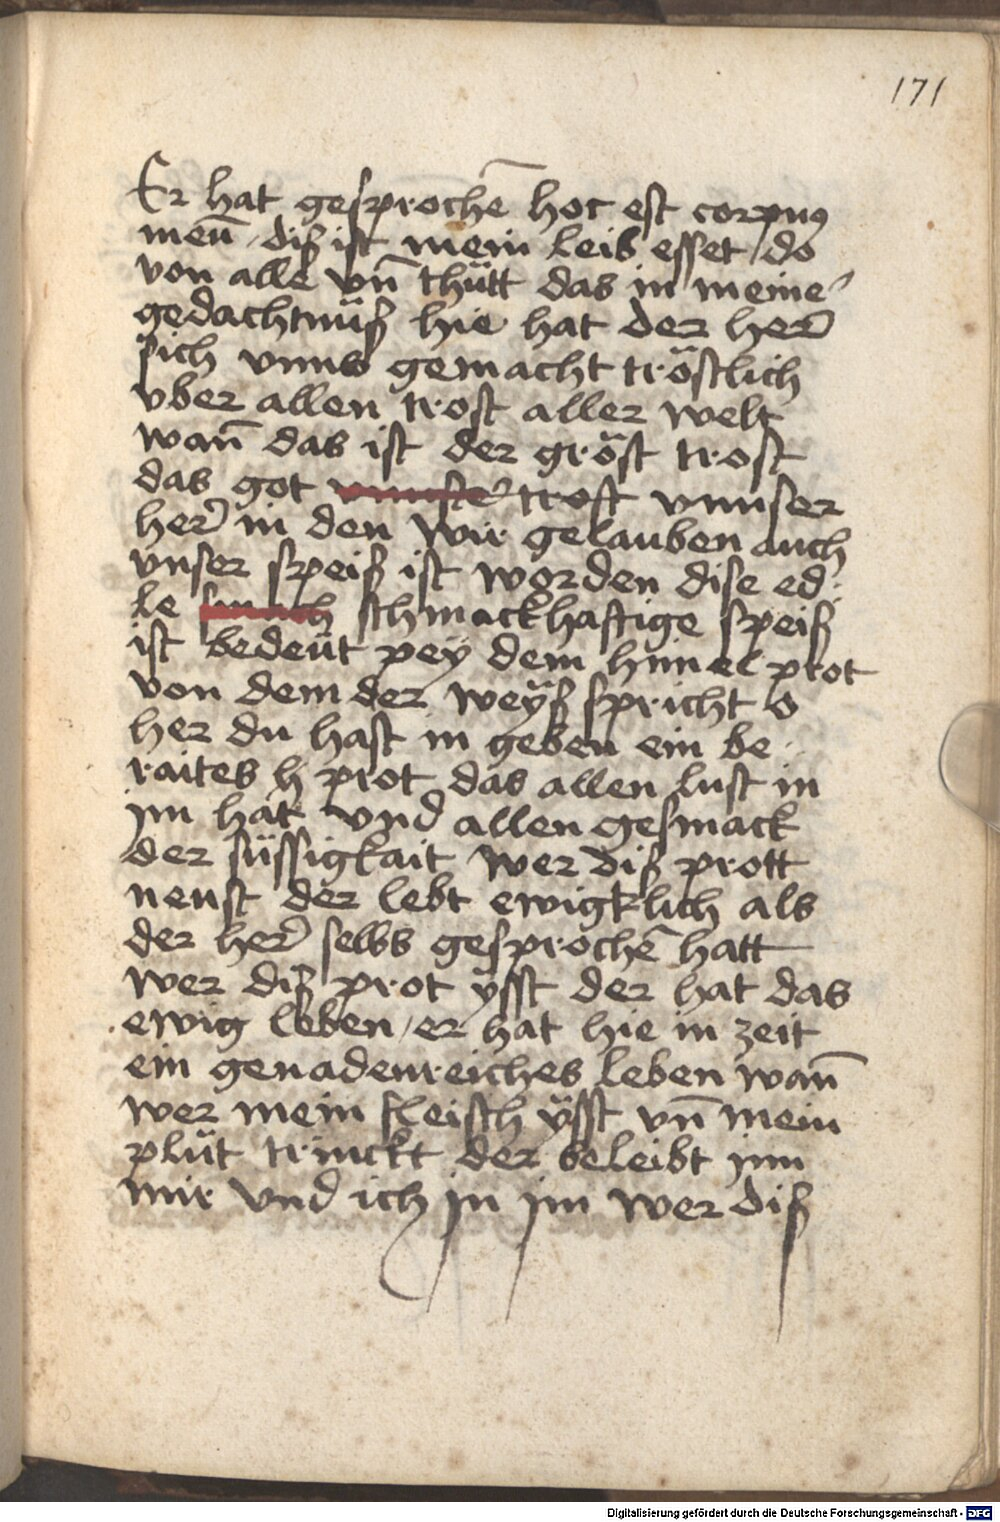 171
Er hat gesprochē hoc est corpus
meū / diß ist mein leib esset / do
von alle vn̄ thütt das in meine᾽
gedachtnüß hie hat der her᾽
sich vnns gemacht tröstlich
vber allen trost aller welt
wan̄ das ist der gröst trost
das got trost vnnser
her᾽ in den wir gelauben auch
vnser speiß ist worden dise ed
le schmackhaftige speiß
ist bedeüt pey dem himel prot
von dem der weÿß spricht o
her du hast in geben ein be
raites h prot das allen lust in
jm hat vnd allen gesmack
der süssigkait wer diß prott
neust der lebt ewigklich als
der her᾽ selbs gesprochē hatt
wer diß prot ÿsst der hat das
ewig leben / er hat hie in zeit
ein genadenreiches leben wan̄
wer mein fleisch ÿsst vn̄ mein
plüt trinckt der beleibt jnn
mir vnd ich jn jm wer diß
Digitalisierung gefördert durch die Deutsche Forschungsgemeinschaft - DFG